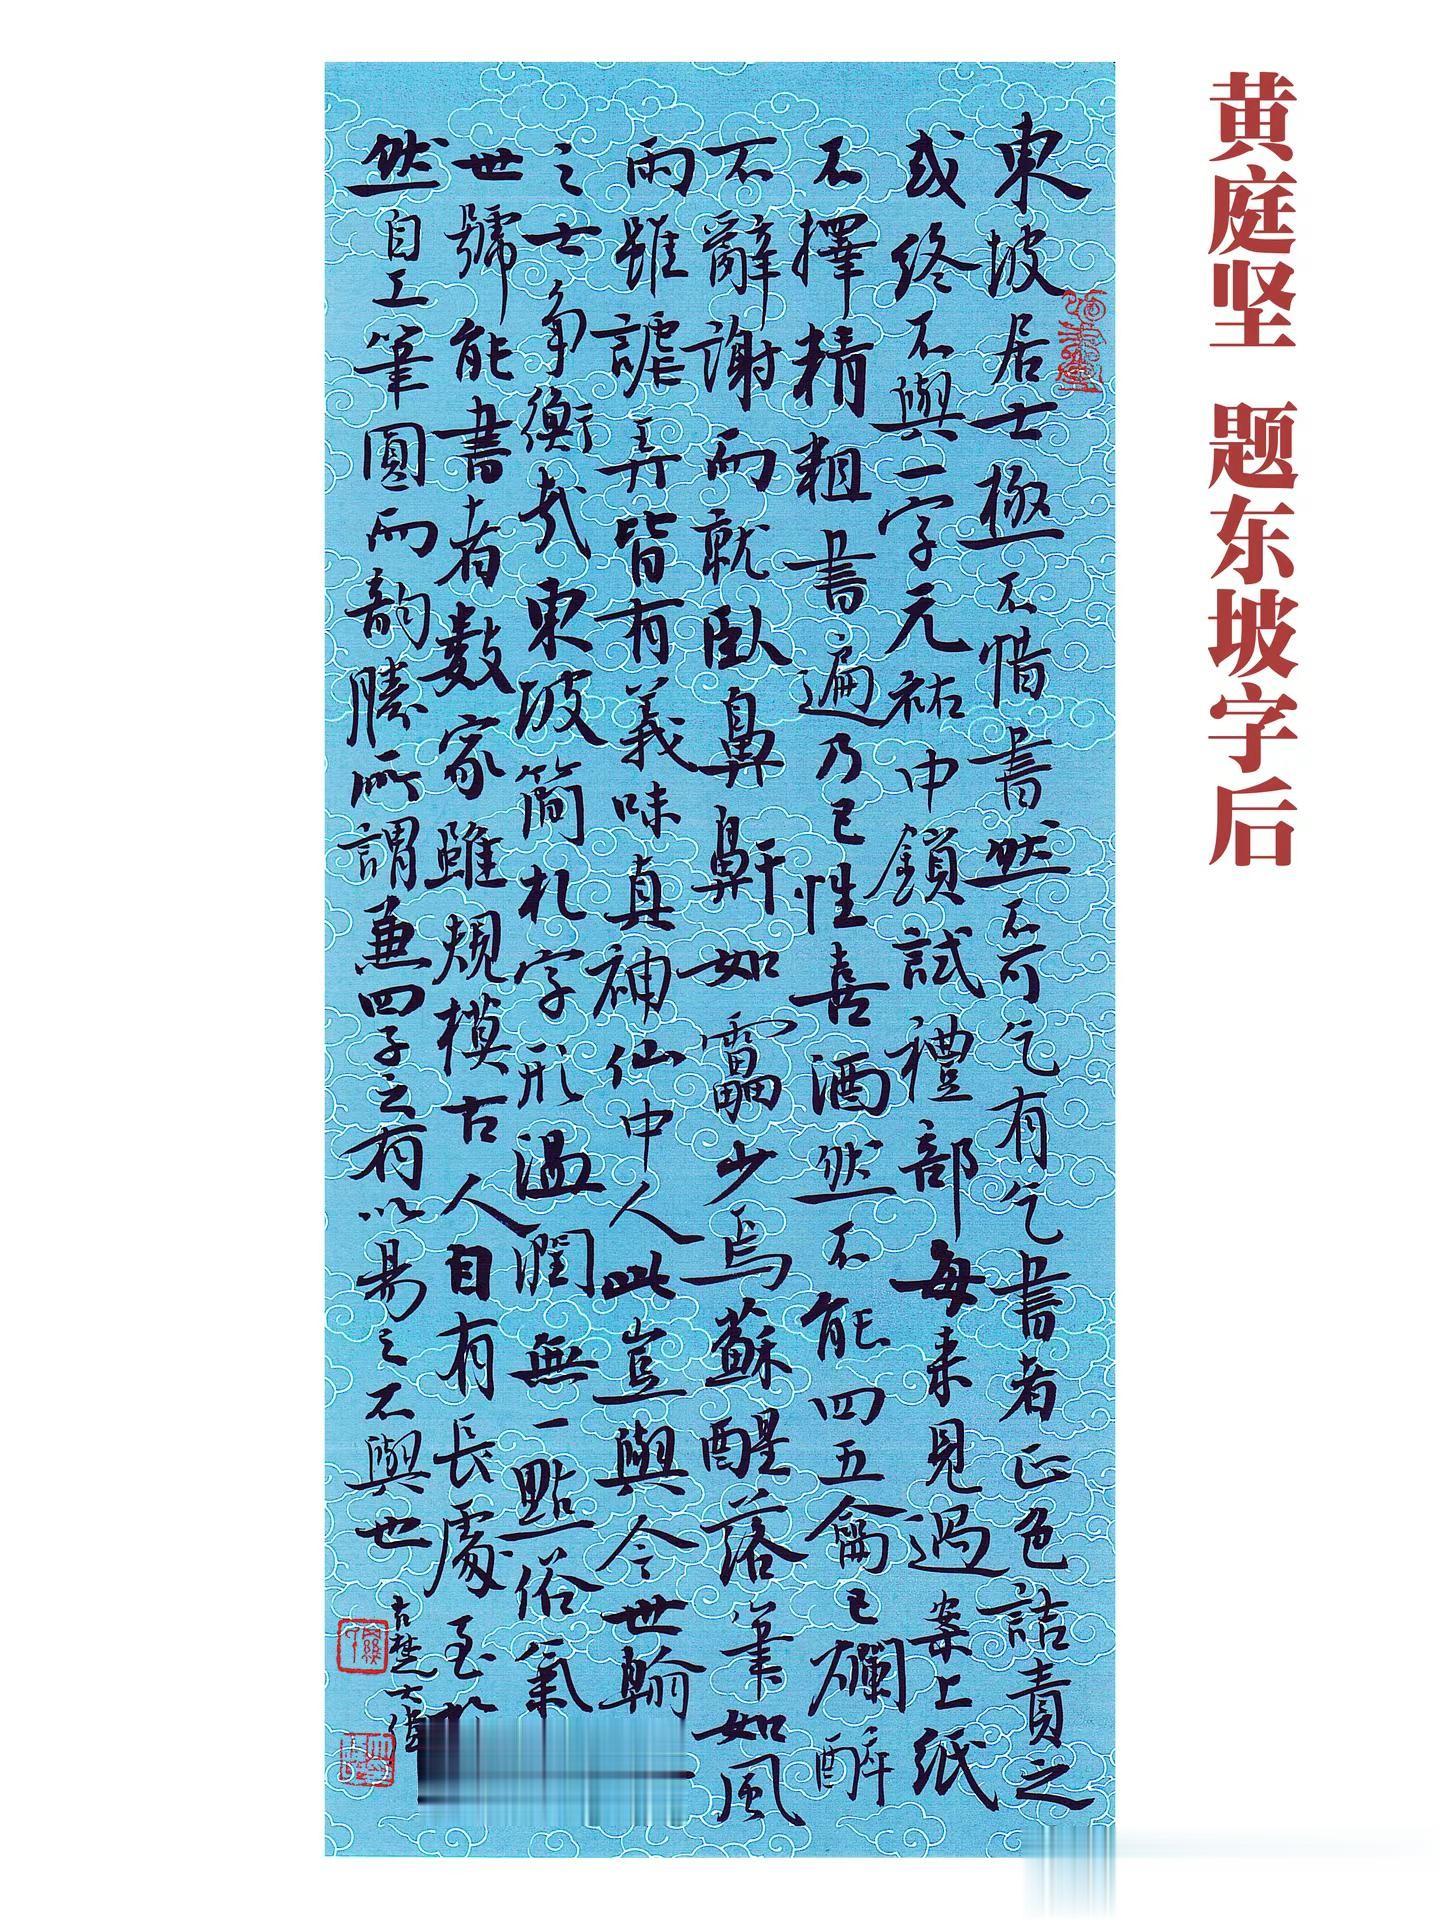 黄庭坚 题东坡字后
東坡居士極不惜書然不可乞有乞書者正色詰責之
或終不與一字元祐中鎖試禮部每来見過案上紙
不擇精粗書遍乃已性喜酒然不能四五龠已爛醉
不辭謝而就臥鼻鼾如靁少焉蘇醒落筆如風
雨雖謔弄皆有義味真神仙中人此豈與今世翰
之士争衡哉東坡簡札字形温潤無一點俗氣
世號能書者數家雖規模古人自有長處至於
然自工筆圓而韵勝所謂兼四子之有以易之不與也
古楚大偉